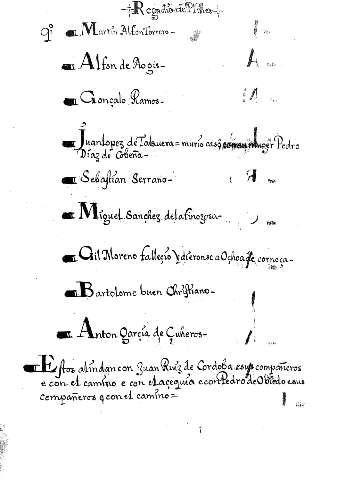 9º Martin Alfon Torrero-
Alfon de Rogis-
Gonçalo Ramos-
Juan Lopez de Talauera = murio caso con su muger Pedro
Diaz de Cobeña-
Sebastian Serrano-
Miguel Sanchez de la
Gil Moreno falleçio y dieronse a Ochoa de cornoça-
Bartolome buen Christiano-
Anton Garçia de Çuheros-
Estos alindan con Juan Ruiz de Cordoba e sus compañeros
e con el camino e con el açequia e con Pedro de Obiedo e sus
compañeros y con el camino=